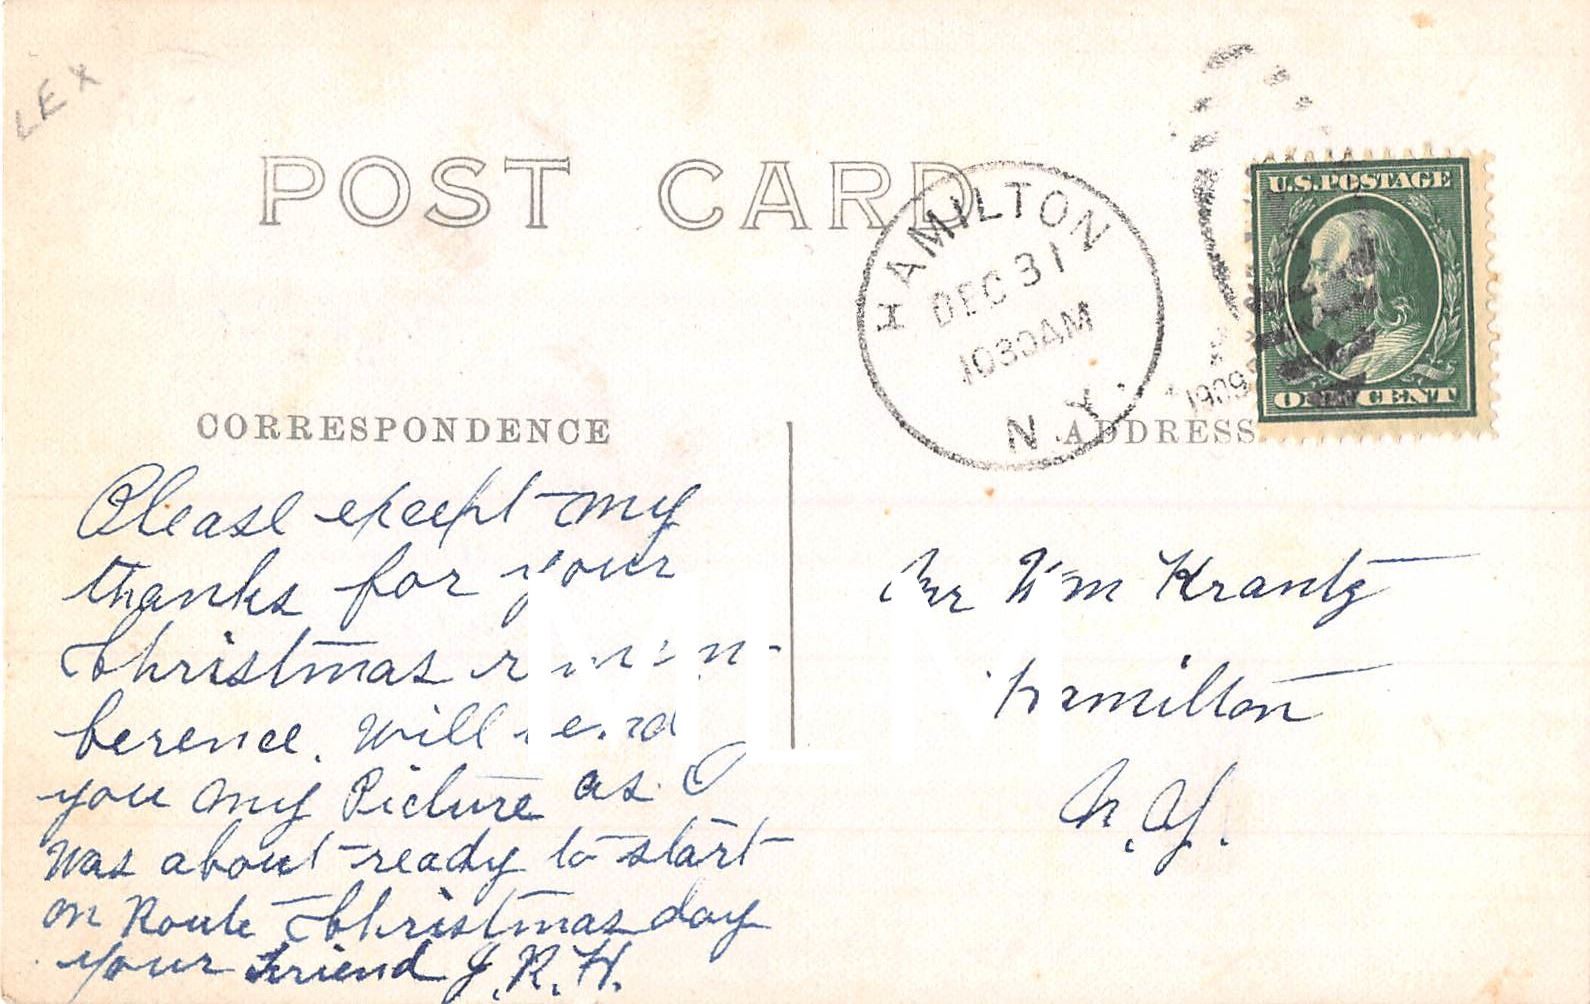 LEX
POST CARD
HAMILTON
DEC 31
1030AM
N.Y.
1909
U.S. POSTAGE
ONE CENT
CORRESPONDENCE
ADDRESS
Please except my
thanks for your
Christmas
berence. Will send
you my Picture as I
was about ready to start
on Route Christmas day
your friend J.R.H.
Mr Wm Krantz
Hamilton
N.Y.